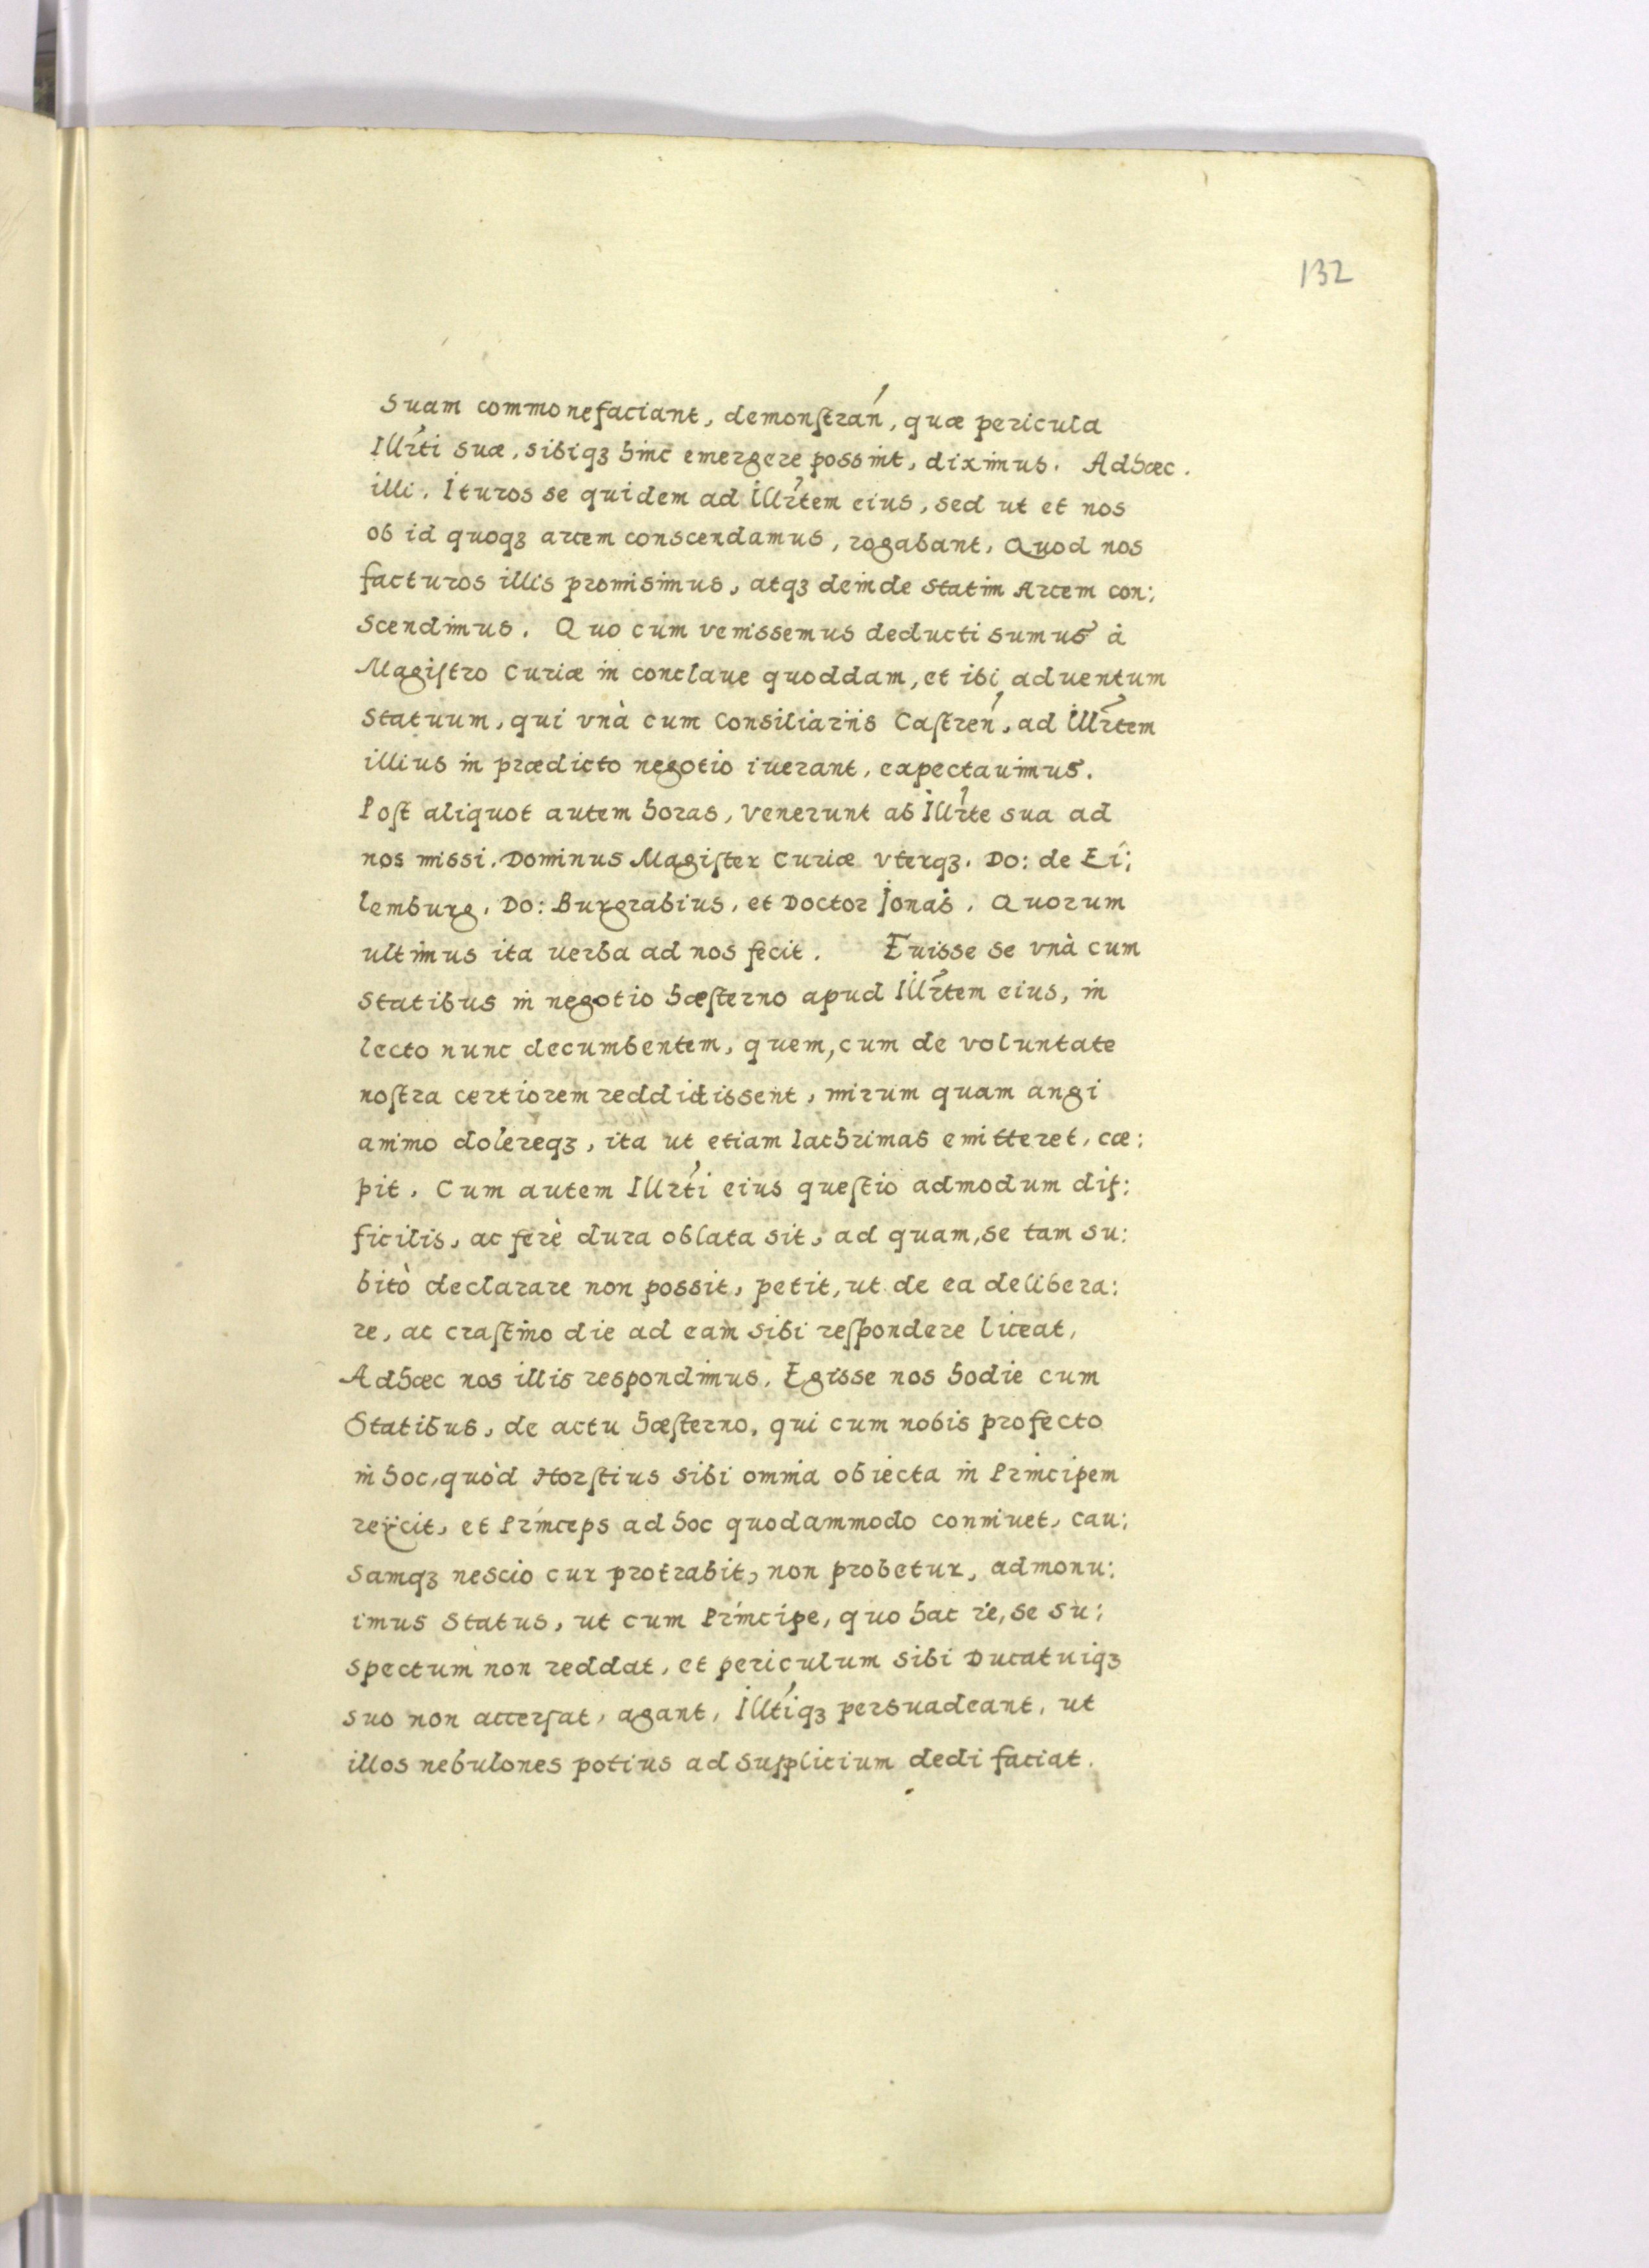 132
Suam commonefaciant, demonſtran, quæ pericula
Illrti suæ, sibiqꝫ hinc emergere possint, diximus. Adhæc.
illi. Ituros se quidem ad Illrtem eius, sed ut et nos
ob id quoqꝫ arcem conscendamus, rogabant, Quod nos
facturos illis promisimus, atqꝫ deinde statim Arcem con:
scendimus. Quo cum venissemus deducti sumus à
Magiſtro Curiæ in conclaue quoddam, et ibi aduentum
Statuum, qui vnà cum Consiliariis Caſtren, ad Illrtem
illius in prædicto negotio iuerant, expectauimus.
Poſt aliquot autem horas, venerunt ab Illrte sua ad
nos missi. Dominus Magiſter Curiæ vterqꝫ. Do: de Ei:
lemburg. Do: Burgrabius, et Doctor Jonas. Quorum
ultimus ita uerba ad nos fecit. Fuisse se vnà cum
Statibus in negotio hæſterno apud Illrtem eius, in
lecto nunc decumbentem, quem, cum de voluntate
noſtra certiorem reddidissent, mirum quam angi
animo dolereqꝫ, ita ut etiam lachrimas emitteret, cæ:
pit. Cum autem Illrti eius queſtio admodum dif:
ficilis, ac ferè dura oblata sit, ad quam, se tam su:
bitò declarare non possit, petit, ut de ea delibera:
re, ac craſtino die ad eam sibi reſpondere liceat,
Adhæc nos illis respondimus. Egisse nos hodie cum
Statibus, de actu hæſterno, qui cum nobis profecto
in hoc, quòd Horſtius sibi omnia obiecta in Principem
reÿcit, et Princeps ad hoc quodammodo conniuet, cau:
samqꝫ nescio cur protrahit, non probetur, admonu:
imus Status, ut cum Principe, quo hac re, se su:
spectum non reddat, et periculum sibi Ducatuiqꝫ
suo non accersat, agant, Illtiqꝫ persuadeant, ut
illos nebulones potius ad Supplicium dedi faciat.